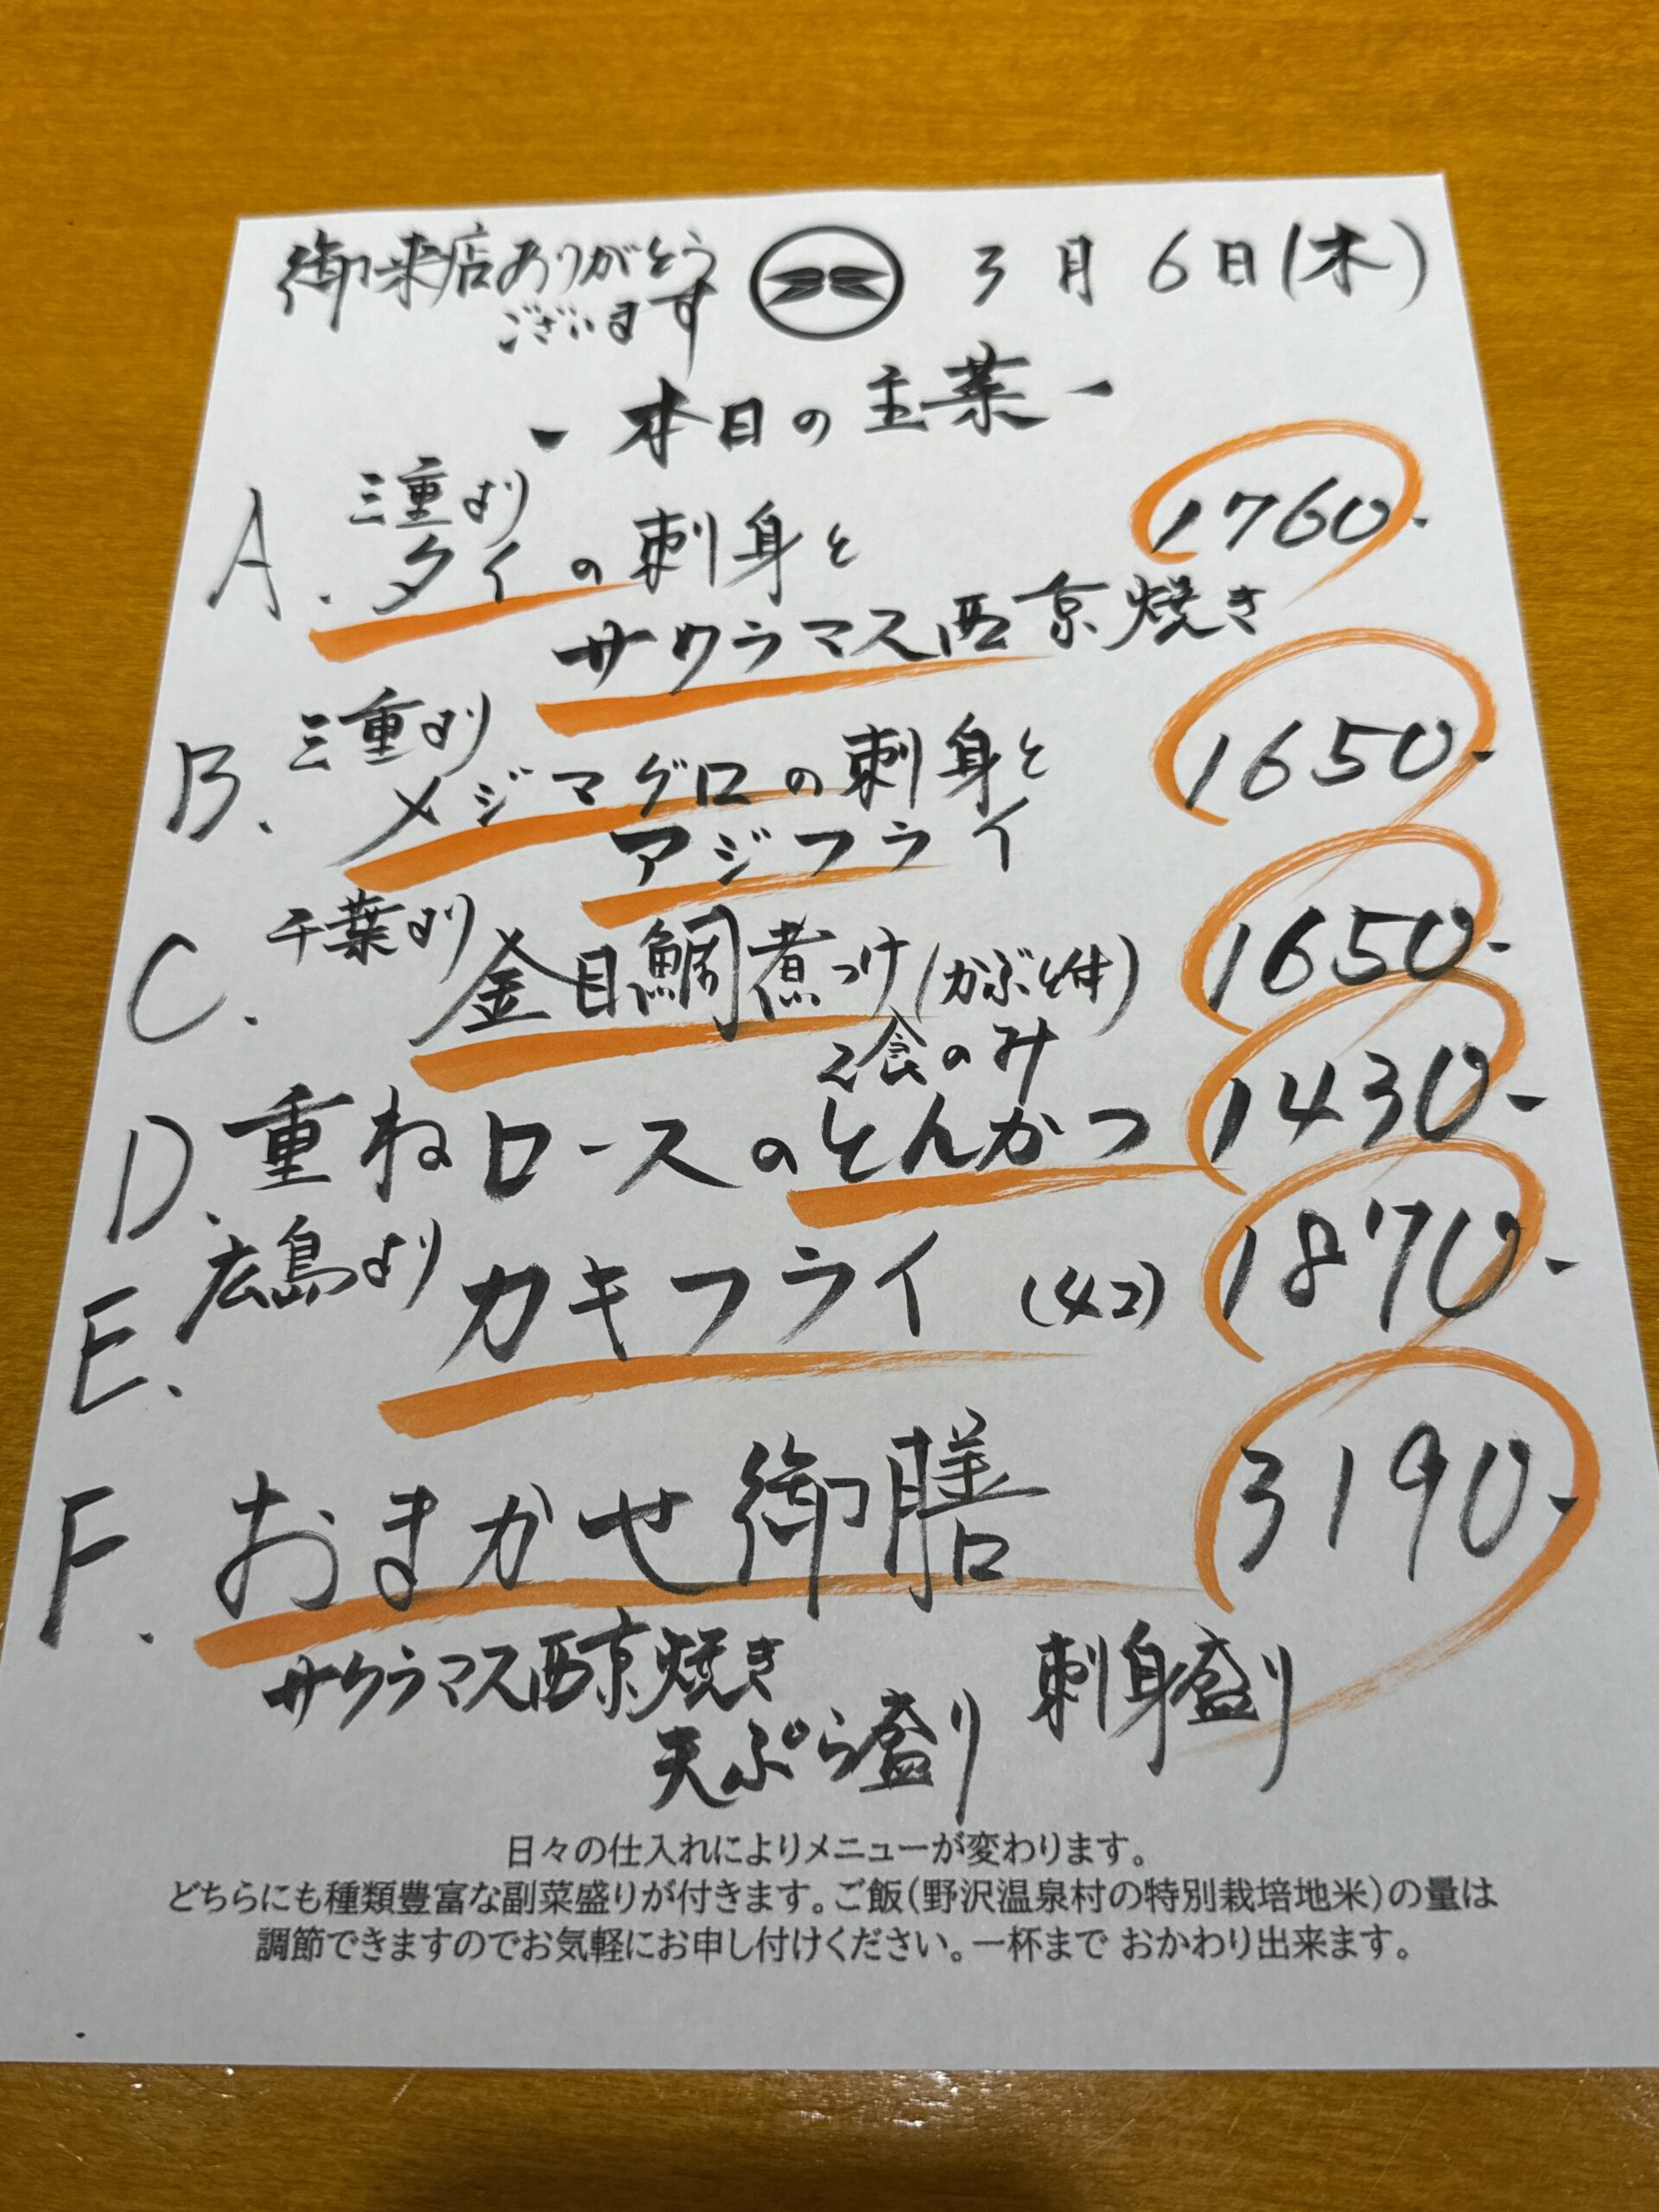 御来店ありがとう
ございます
3月6日(木)
- 本日の主菜 -
A. 三重より
タイの刺身と
サクラマス西京焼き
1760-
B. 三重より
メジマグロの刺身と
アジフライ
1650-
C. 千葉より
金目鯛煮つけ(かぶと付)
1650-
2食のみ
D. 重ねロースのとんかつ
1430-
E. 広島より
カキフライ (4コ)
1870-
F. おまかせ御膳
3190-
サクラマス西京焼き 刺身盛り
天ぷら盛り
日々の仕入れによりメニューが変わります。
どちらにも種類豊富な副菜盛りが付きます。ご飯(野沢温泉村の特別栽培地米)の量は
調節できますのでお気軽にお申し付けください。一杯まで おかわり出来ます。